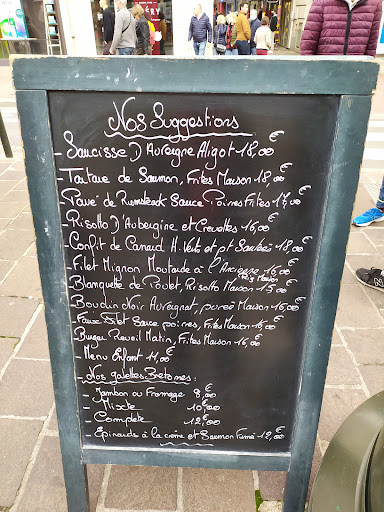 Nos Suggestions
- Saucisse D'Auvergne Aligot 18,00€
- Tartare de Saumon, Frites Maison 18,00€
- Pavé de Rumsteack Sauce Poivres Frites 17,00€
- Risotto D'Aubergine et Crevettes 16,00€
- Confit de Canard H. Verts et pt Sautées 18,00€
- Filet Mignon Moutarde à l'Ancienne 16,00€
- Blanquette de Poulet, Risotto Maison 15,00€
- Boudin Noir Auvergnat, purée Maison 16,00€
- Faux Filet Sauce poivres, Frites Maison 16,00€
- Burger Réveil Matin, Frites Maison 16,00€
- Menu Enfant 11,00€
- Nos galettes Bretonnes:
- Jambon ou Fromage 8,00€
- Mixte 10,00€
- Complète 12,00€
- Epinards à la crème et Saumon Fumé 12,00€